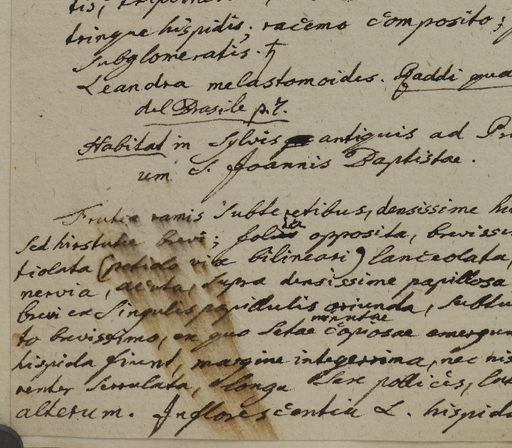 tis, 
utrinque hispidis; racemo composito;
Subglomeratis. ♄
Leandra melastomoides. Raddi qua
del Brasile p. 7.
Habitat in Sylvis antiquis ad Pr
um S. Joannis Baptistae.
Frutex ramis Subteretibus, densissime hi
sed hirsutie brevi; folia opposita, brevissi
tiolata (petiolo vix bilineari) lanceolata,
nervia, acuta, Supra densissime papillosa
brevi ex Singulis papillulis oriunda, Subtu
to brevissimo, ex quo Setae minutae copiosae emergun
hispida fiunt, margine integerrima, nec his
venter Serrulata, longa Sex pollices, lat
alterum. Inflorescentia L. hispida